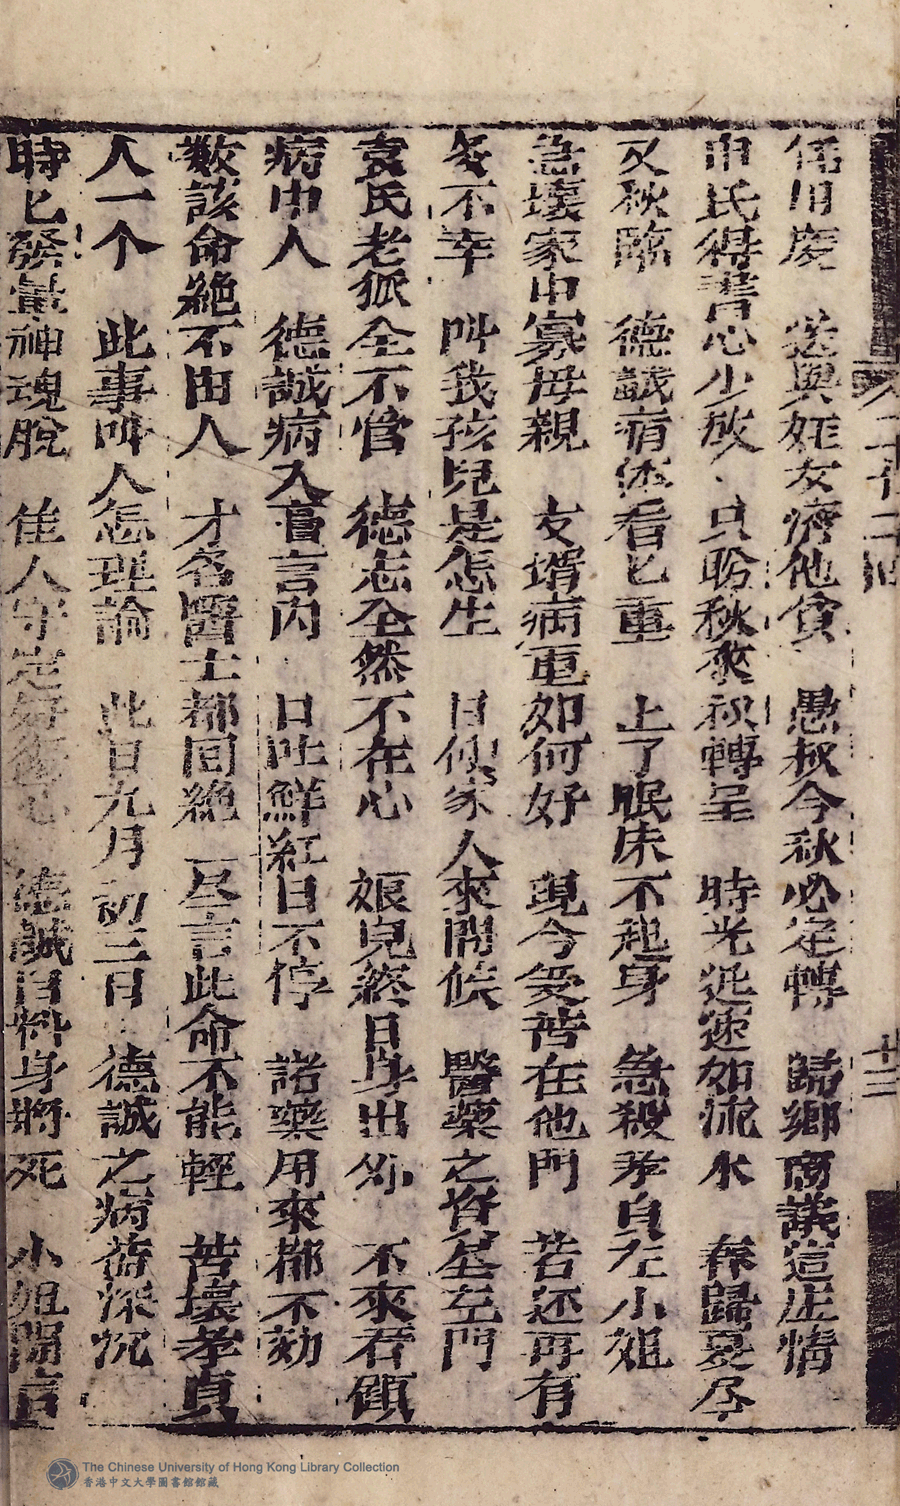 用度 送與姪女濟他貧 愚叔今秋必定轉 歸鄉商議這庄情
申氏得書心少放 只盼秋來叔轉呈 時光迅速如流水 春歸夏尽
又秋臨 德誠病体看匕重 上了眠床不起身 急殺孝貞左小姐
急壞家中寡母親 女壻病重如何好 現今受苦在他門 若还再有
不幸 叫我孩兒是怎生 日使家人來問候 醫藥之資左門
袁氏老狐全不管 德志全然不在心 娘兒終日身出外 不來看顧
病中人 德誠病入膏言内 口吐鮮紅日不停 諸藥用來都不効
数該命絕不由人 才名醫士都回絕 尽言此命不能輕 苦壞孝貞
人一个 此事叫人怎理論 此日九月初三日 德誠之病荷深沉
時匕發暈神魂脫 佳人守定好傷心 德誠自料身將死 小姐開言
二十卷二回
十三
The Chinese University of Hong Kong Library Collection
香港中文大學圖書館館藏